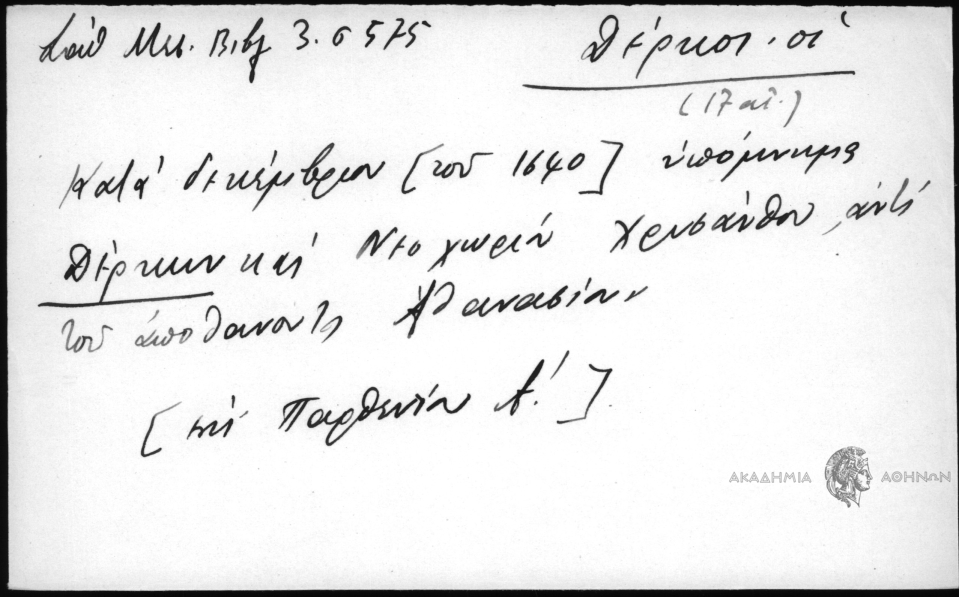 Σάθ Μεσ. Βιβλ 3. σ 575
Δέρκοι · οἱ
(17 αἰ.)
Κατά δεκέμβριον [τοῦ 1640] ὑπόμνημα
Δέρκων καί Νεοχωρίου Χρυσάνθου, ἀντί
τοῦ ἀποθανόντος Ἀθανασίου
[ἐπί Παρθενίου Α΄.]
ΑΚΑΔΗΜΙΑ ΑΘΗΝΩΝ